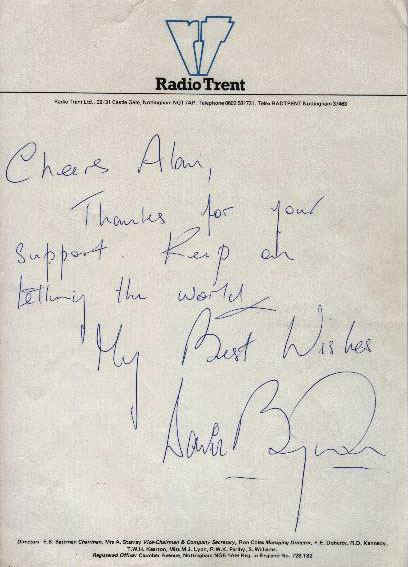 Radio Trent
Radio Trent Ltd., 29-31 Castle Gate, Nottingham NG1 7AP. Telephone 0602 581731. Telex RADTRENT Nottingham 37463
Cheers Alan,
Thanks for your
support. Keep on
telling the world
My Best Wishes
Directors: Chairman, Mrs A. Stanley Vice-Chairman & Company Secretary, Ron Coles Managing Director, R.D. Kennedy,
T.W.H. Mrs M.J. Lyon, P.W.K. S. Williams.
Registered Office: Nottingham Reg in England No.